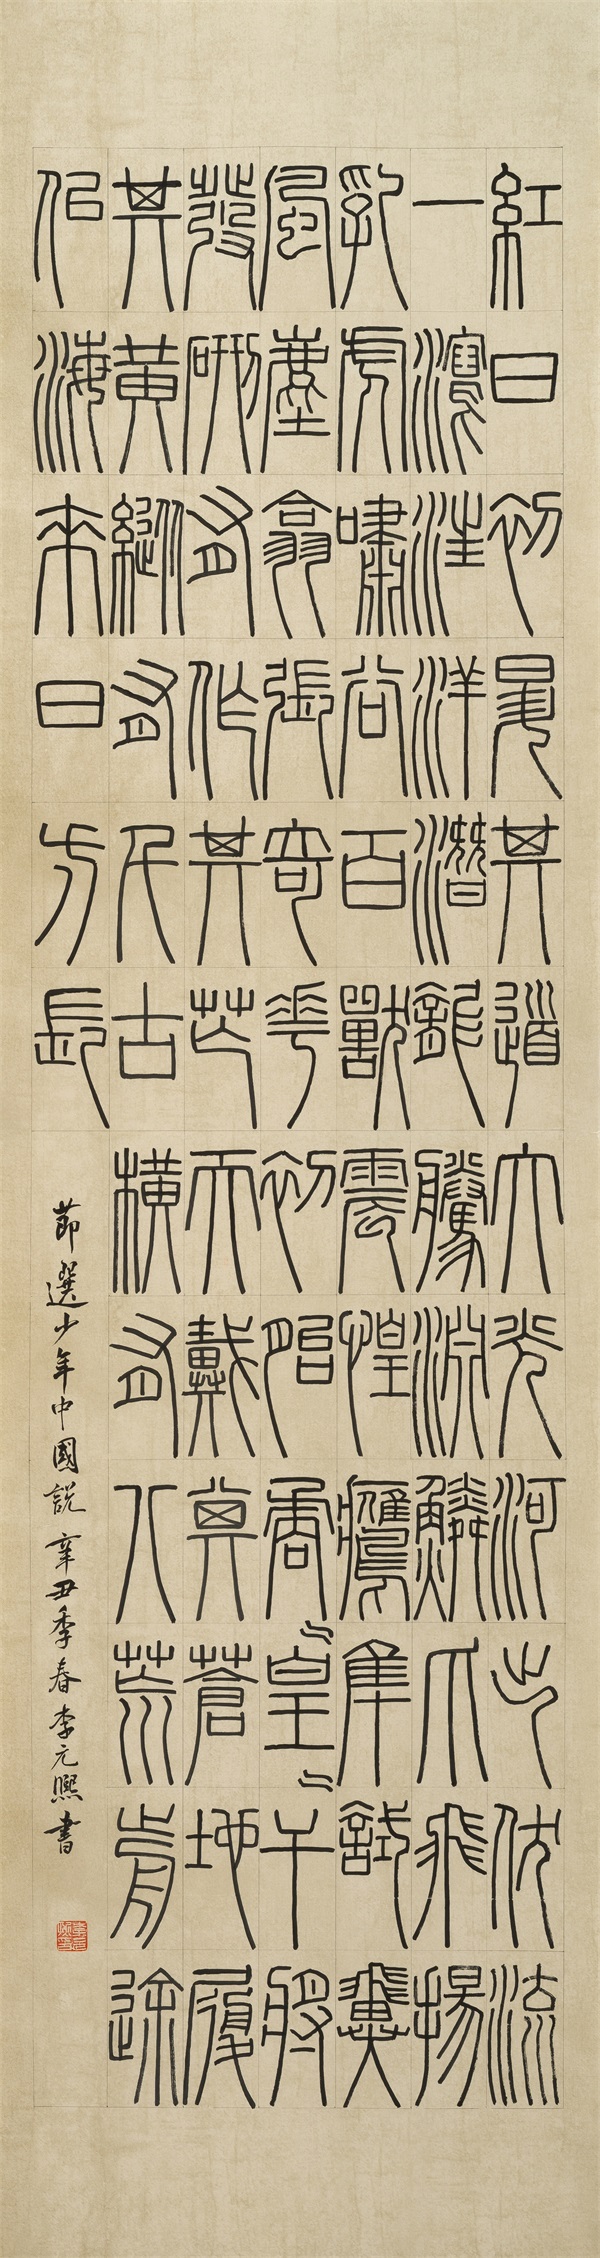 紅日初昇其道大光河出伏流
一瀉汪洋潛龍騰淵鱗爪飛揚
乳虎嘯谷百獸震惶鷹隼試翼
風塵翕張奇花初胎矞〻皇〻干將
發硎有作其芒天戴其蒼地履
其黃縱有千古橫有八荒前途
佀海來日方長
節選少年中國說 辛丑季春李元熙書